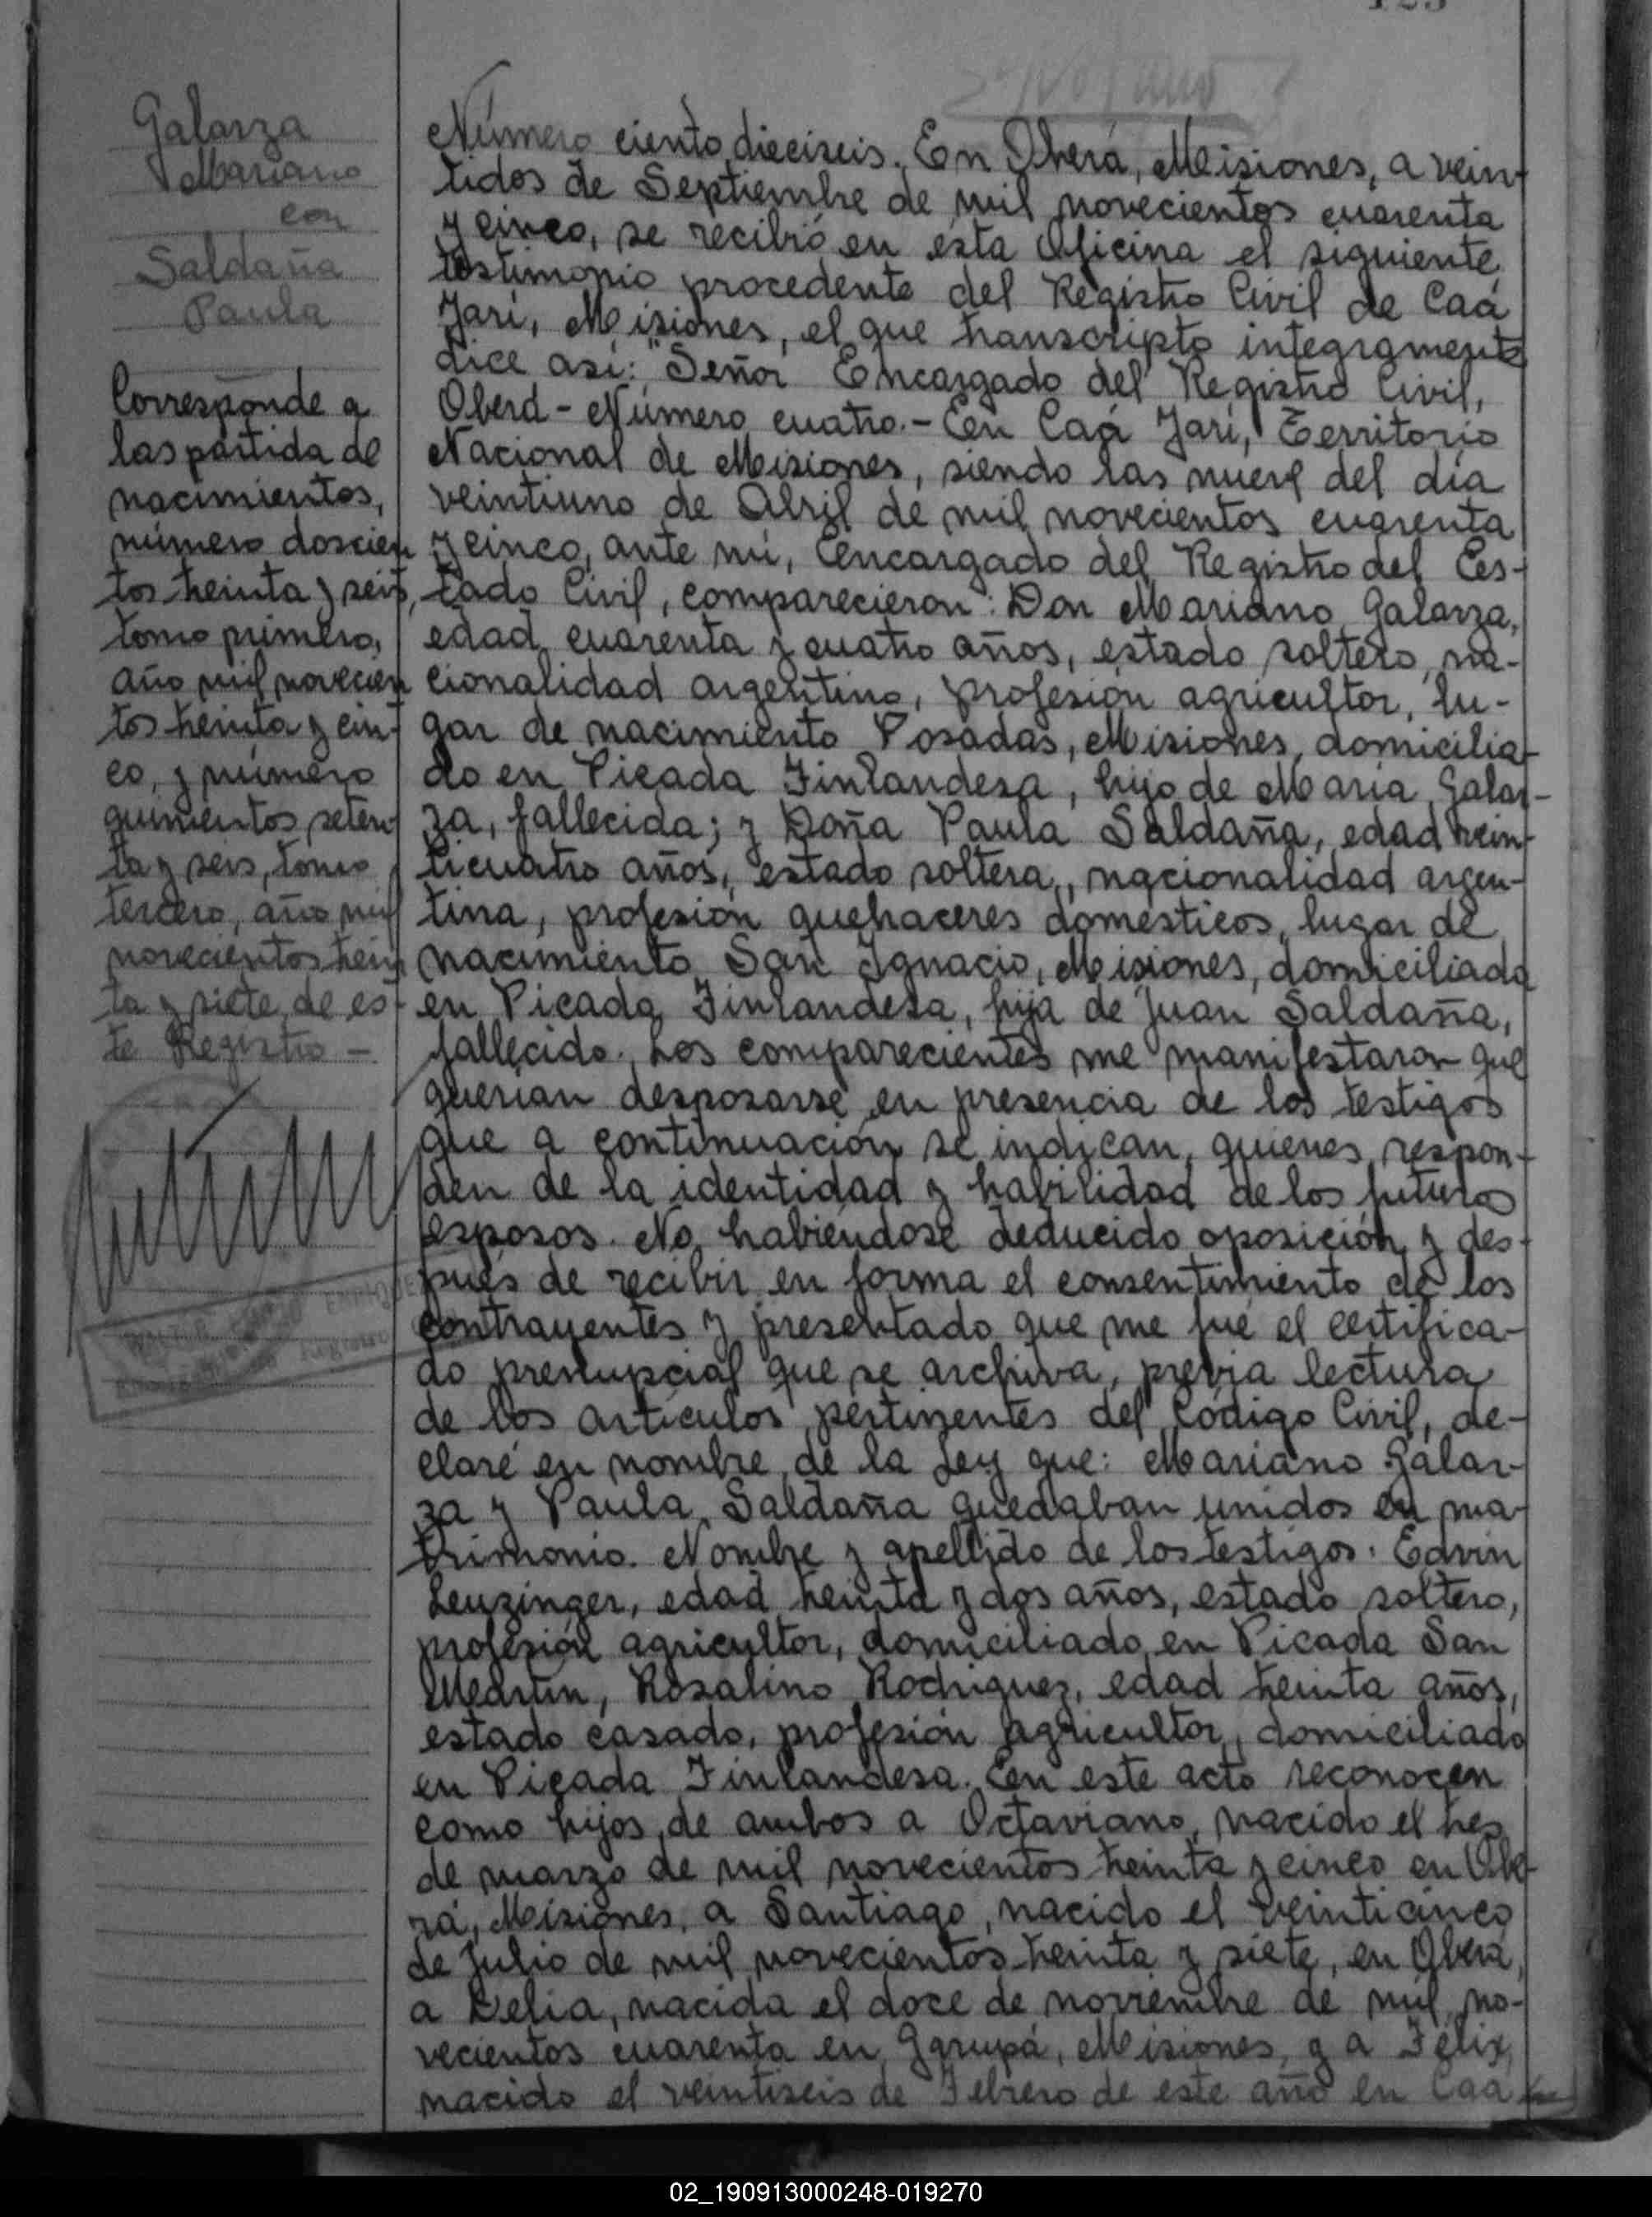 Galarza
Mariano
con
Saldaña
Paula
Corresponde a
las partida de
nacimientos,
número doscien
tos treinta y seis,
tomo primero,
año mil novecien
tos treinta y cin-
co, y número
quinientos seten-
ta y seis, tomo
tercero, año mil
novecientos trein
ta y siete, de es-
te Registro -
Número ciento dieciseis. En Oberá, Misiones, a vein-
tidos de Septiembre de mil novecientos cuarenta
y cinco, se recibió en ésta Oficina el siguiente
testimonio procedente del Registro Civil de Caá
Yarí, Misiones, el que transcripto integramente
dice así: "Señor Encargado del Registro Civil,
Oberá - Número cuatro. - En Caá Yarí, Territorio
Nacional de Misiones, siendo las nueve del día
veintiuno de Abril de mil novecientos cuarenta
y cinco, ante mí, Encargado del Registro del Es-
tado Civil, comparecieron: Don Mariano Galarza,
edad cuarenta y cuatro años, estado soltero, na-
cionalidad argentino, profesión agricultor, lu-
gar de nacimiento Posadas, Misiones, domicilia-
do en Picada Finlandesa, hijo de María Galar-
za, fallecida; y Doña Paula Saldaña, edad vein-
ticuatro años, estado soltera, nacionalidad argen-
tina, profesión quehaceres domésticos, lugar de
nacimiento San Ignacio, Misiones, domiciliada
en Picada Finlandesa, hija de Juan Saldaña,
fallecido. Los comparecientes me manifestaron que
querían desposarse en presencia de los testigos
que a continuación se indican, quienes respon-
den de la identidad y habilidad de los futuros
esposos. No habiéndose deducido oposición y des-
pués de recibir en forma el consentimiento de los
contrayentes y presentado que me fué el certifica-
do prenupcial que se archiva, previa lectura
de los artículos pertinentes del Código Civil, de-
claré en nombre de la Ley que: Mariano Galar-
za y Paula Saldaña quedaban unidos en ma-
trimonio. Nombre y apellido de los testigos: Edvin
Leuzinger, edad treinta y dos años, estado soltero,
profesión agricultor, domiciliado en Picada San
Martín, Rosalino Rodriguez, edad treinta años,
estado casado, profesión agricultor, domiciliado
en Picada Finlandesa. En este acto reconocen
como hijos de ambos a Octaviano, nacido el tres
de marzo de mil novecientos treinta y cinco en Obe-
rá, Misiones, a Santiago, nacido el veinticinco
de Julio de mil novecientos treinta y siete, en Oberá,
a Delia, nacida el doce de noviembre de mil no-
vecientos cuarenta en Garupá, Misiones, y a Félix,
nacido el veintiseis de Febrero de este año en Caá
02_190913000248-019270